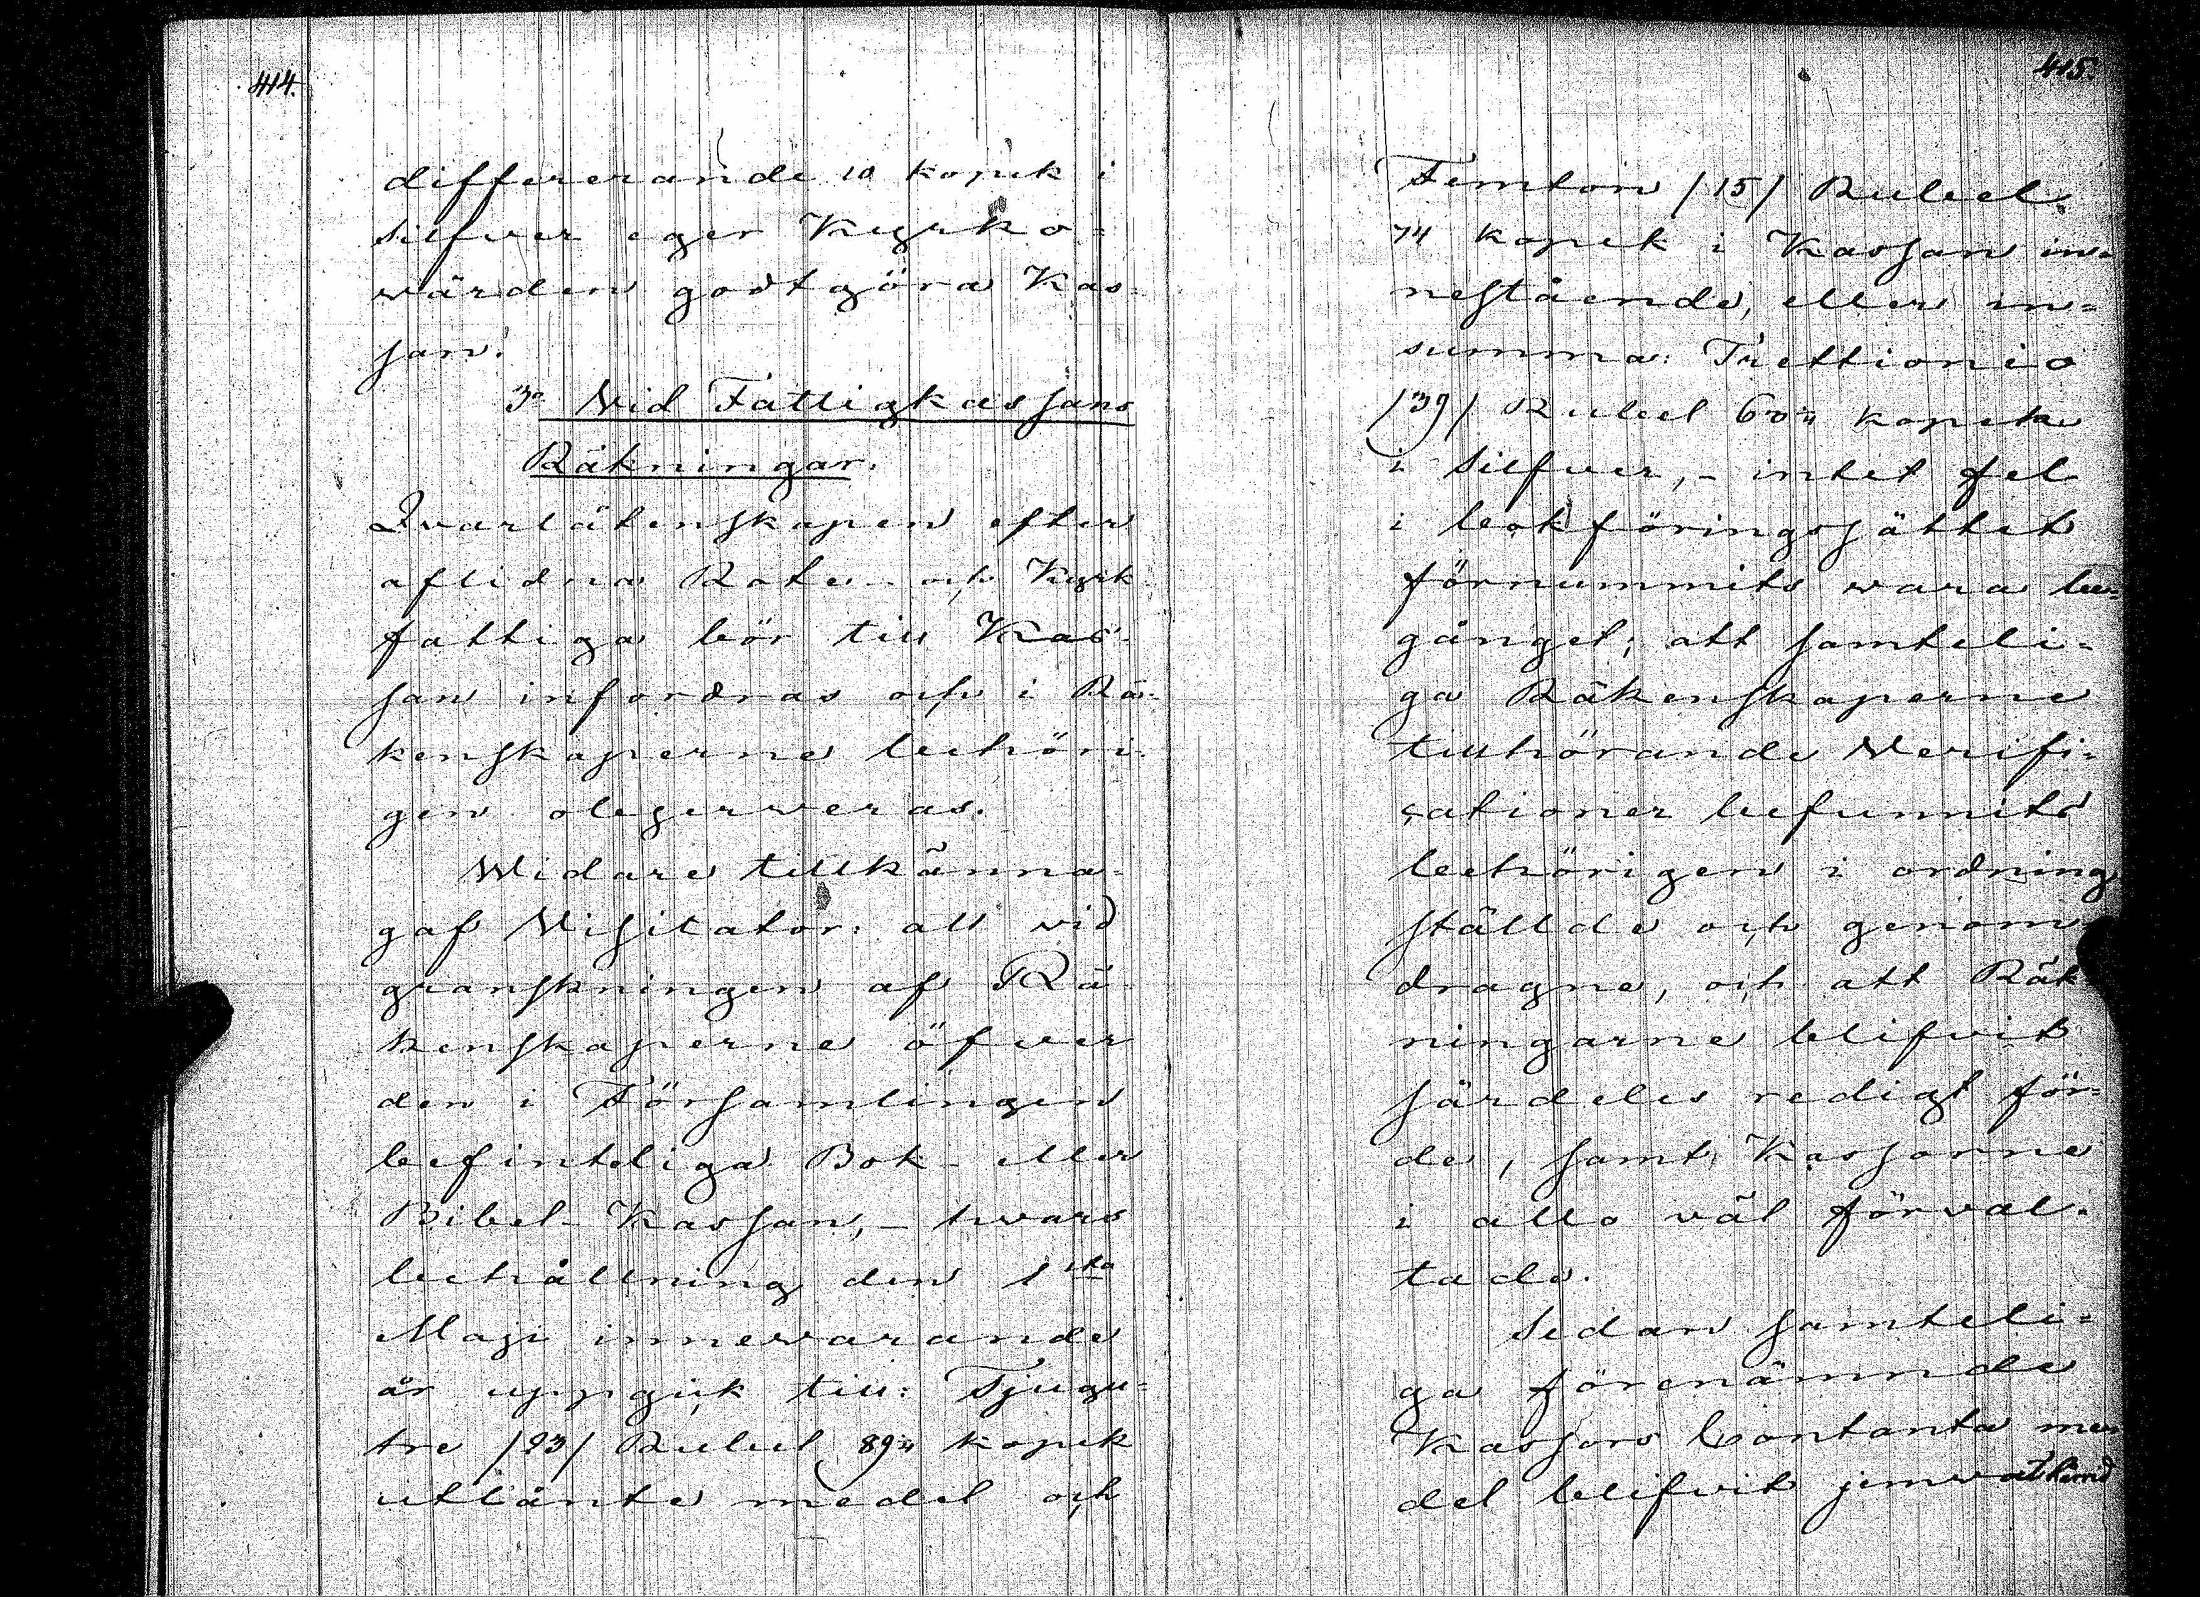 414.
differerande 10 kopek i
silfver eger Kyrko=
wärden godtgöra Kas-
san.
3o Vid Fattigkassans
Räkningar.
Qvarlåtenskapen efter
aflidna Rote- och Kyrk-
fattiga bör till Kas-
san infordras och i Rä-
kenskaperne behöri-
gen observeras.
Widare tillkänna-
gaf Visitator: att vid
granskningen af Rä-
kenskaperne öfver
den i Församlingen
befinteliga Bok- eller
Bibel-Kassan, - hvars
behållning den 1sta
Maji innevarande
år uppgick till: Tjugu-
tre /23/ Rubel 89 kopek
utlånte medel och
415.
Femton /15/ Rubel
74 kopek i Kassan in-
nestående, eller in=
summa: Trettionio
/39/ Rubel 60 kopek
i silfver, - intet fel
i bokföringssättet
förnummits vara be-
gånget; att samteli-
ga Räkenskaperne
tillhörande Verifi-
cationer befunnits
behörigen i ordning
ställde och genom
dragne, och att Räk
ningarne blifvit
särdeles redigt för-
de, samt Kassorne
i allo väl förval-
tade.
Sedan samteli=
ga förenämnde
Kassors Contanta me
del blifvit jemväl